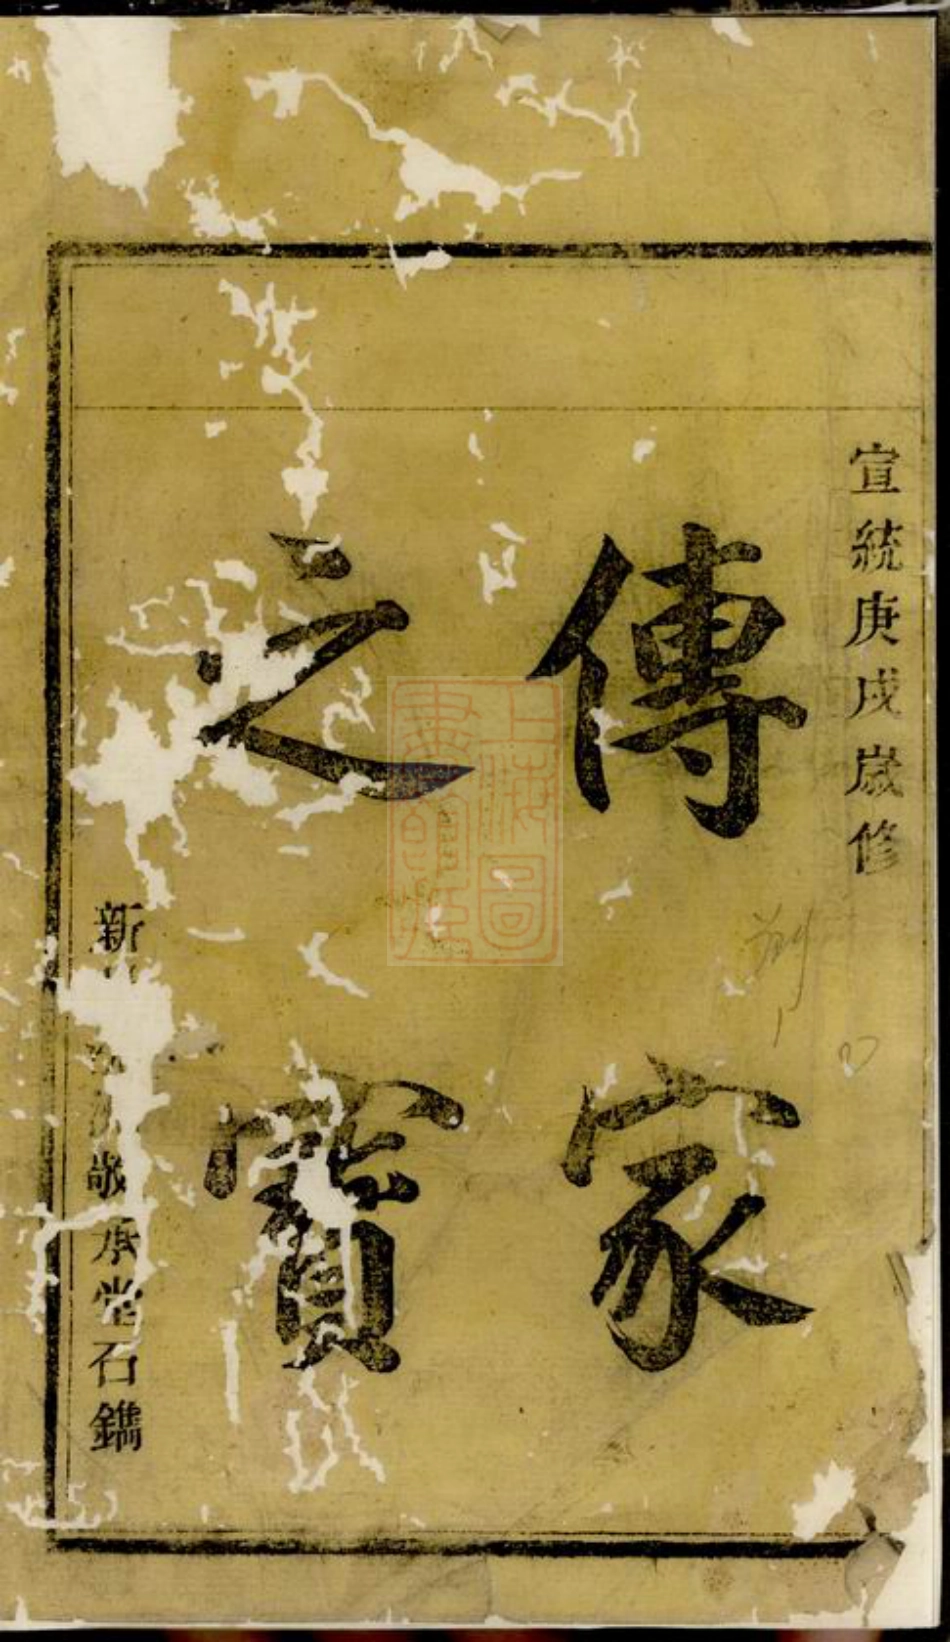 宣統庚戌歲修
傳家
之寶
新 敬承堂石鐫
上海圖書館藏